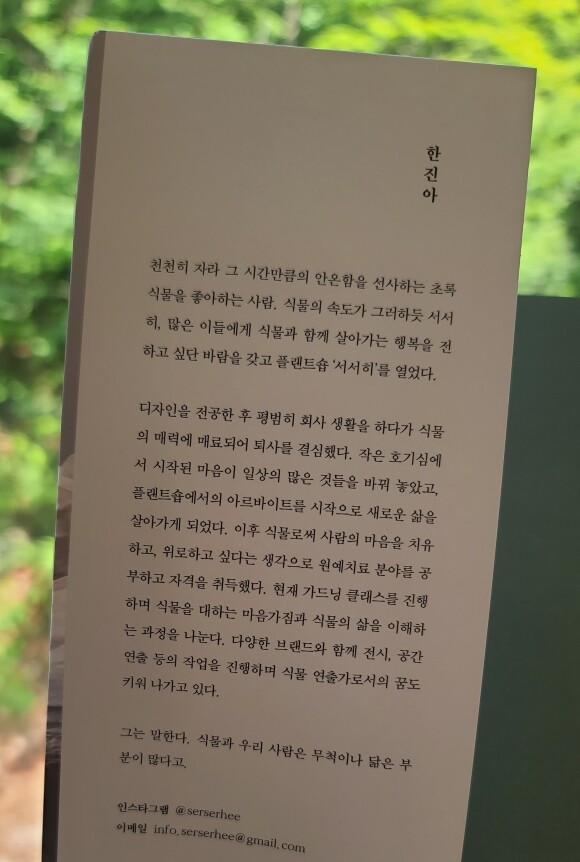 한진아
천천히 자라 그 시간만큼의 안온함을 선사하는 초록
식물을 좋아하는 사람. 식물의 속도가 그러하듯 서서
히, 많은 이들에게 식물과 함께 살아가는 행복을 전
하고 싶단 바람을 갖고 플랜트숍 ‘서서히’를 열었다.
디자인을 전공한 후 평범히 회사 생활을 하다가 식물
의 매력에 매료되어 퇴사를 결심했다. 작은 호기심에
서 시작된 마음이 일상의 많은 것들을 바꿔 놓았고,
플랜트숍에서의 아르바이트를 시작으로 새로운 삶을
살아가게 되었다. 이후 식물로써 사람의 마음을 치유
하고, 위로하고 싶다는 생각으로 원예치료 분야를 공
부하고 자격을 취득했다. 현재 가드닝 클래스를 진행
하며 식물을 대하는 마음가짐과 식물의 삶을 이해하
는 과정을 나눈다. 다양한 브랜드와 함께 전시, 공간
연출 등의 작업을 진행하며 식물 연출가로서의 꿈도
키워 나가고 있다.
그는 말한다. 식물과 우리 사람은 무척이나 닮은 부
분이 많다고.
인스타그램 @serserhee
이메일 info.serserhee@gmail.com